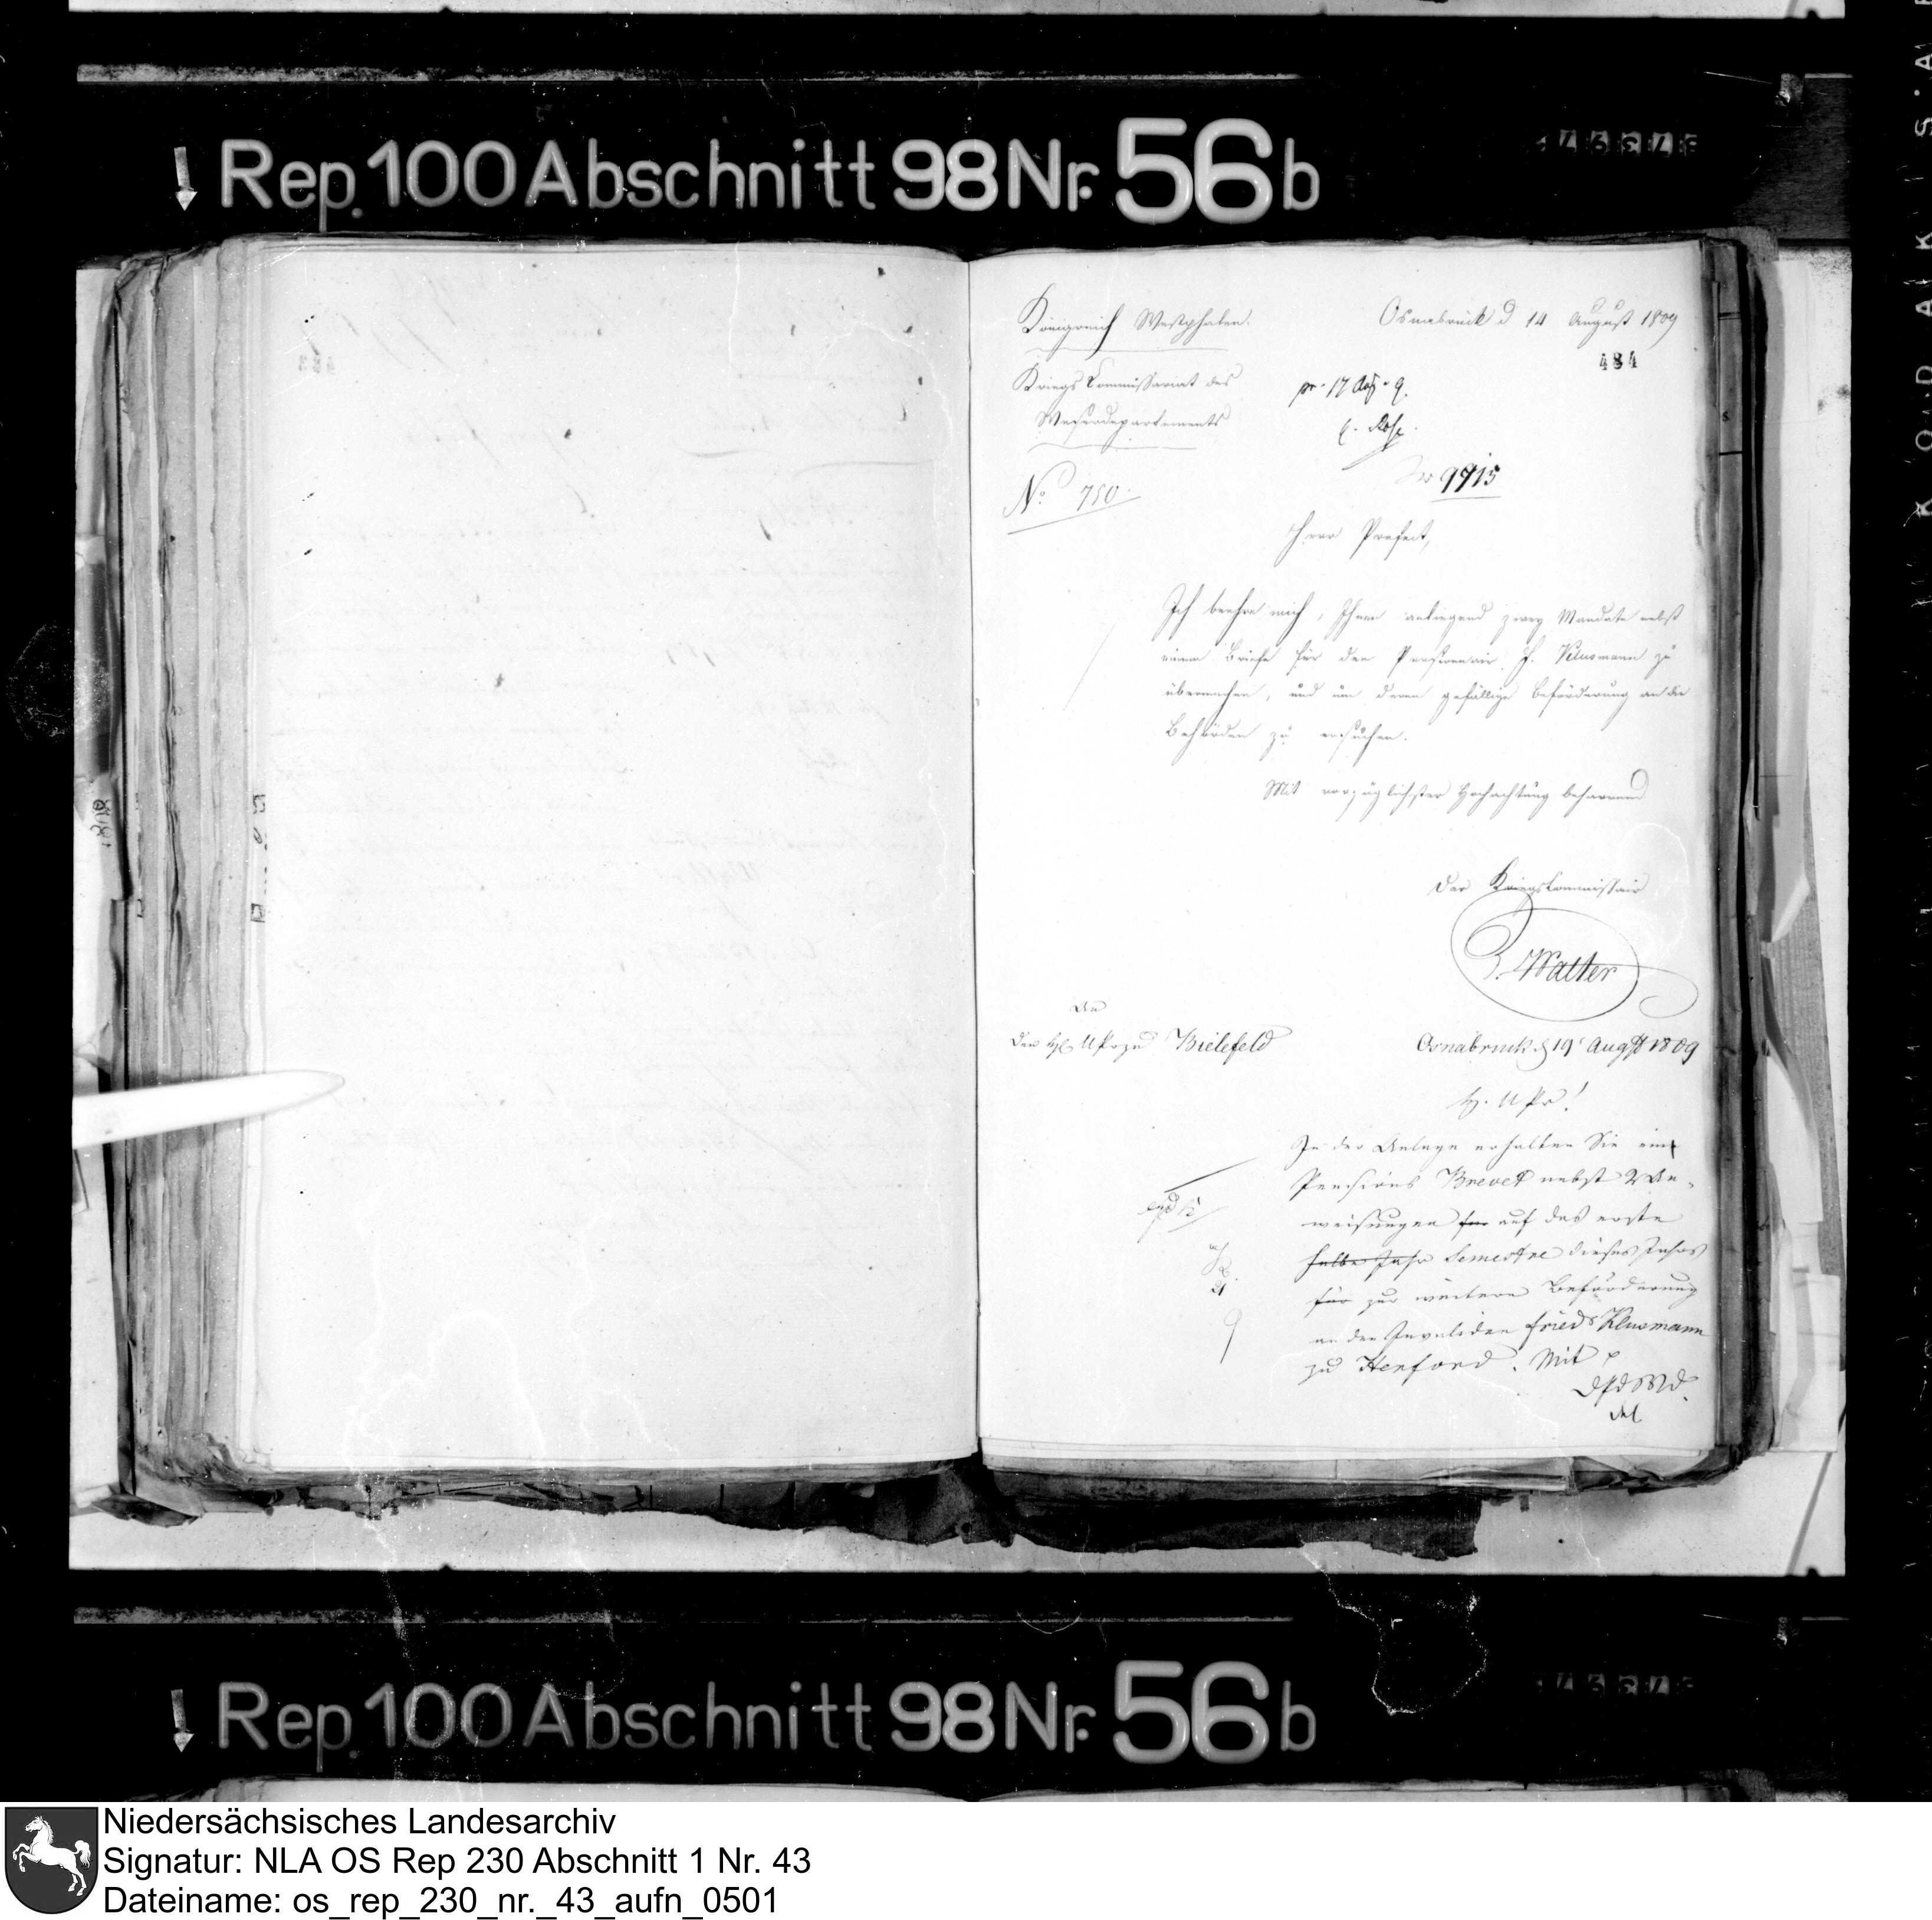 Rep. 100 Abschnitt 98 Nr. 56b
Königreich Westphalen.
Osnabrück d 14 August 1809
484
Kriegs Commissariat des
Weserdepartements
pr. 17 Aug. 9.
No. 750.
9915
Herr Praefect,
Ich beehre mich, Ihnen anliegend zwey Mandate nebst
einem Briefe für den Pensionair F. Klusmann zu
übermachen, und um deren gefällige Beförderung an die
Behörden zu ersuchen.
Mit vorzüglichster Hochachtung beharrend
Der KriegsCommissair
Walter
An
den H. UPr zu Bielefeld
Osnabrück d 19t Augst 1809
H. UPr!
In der Anlage erhalten Sie ein
Pensions Brevet nebst 2 An-
weisungen für auf das erste
halbe Jahr Semestre dieses Jahrs
für zur weitern Beförderung
an den Invaliden Friedr Klusmann
zu Herford. Mit
Rep. 100 Abschnitt 98 Nr. 56b
Niedersächsisches Landesarchiv
Signatur: NLA OS Rep 230 Abschnitt 1 Nr. 43
Dateiname: os_rep_230_nr._43_aufn_0501